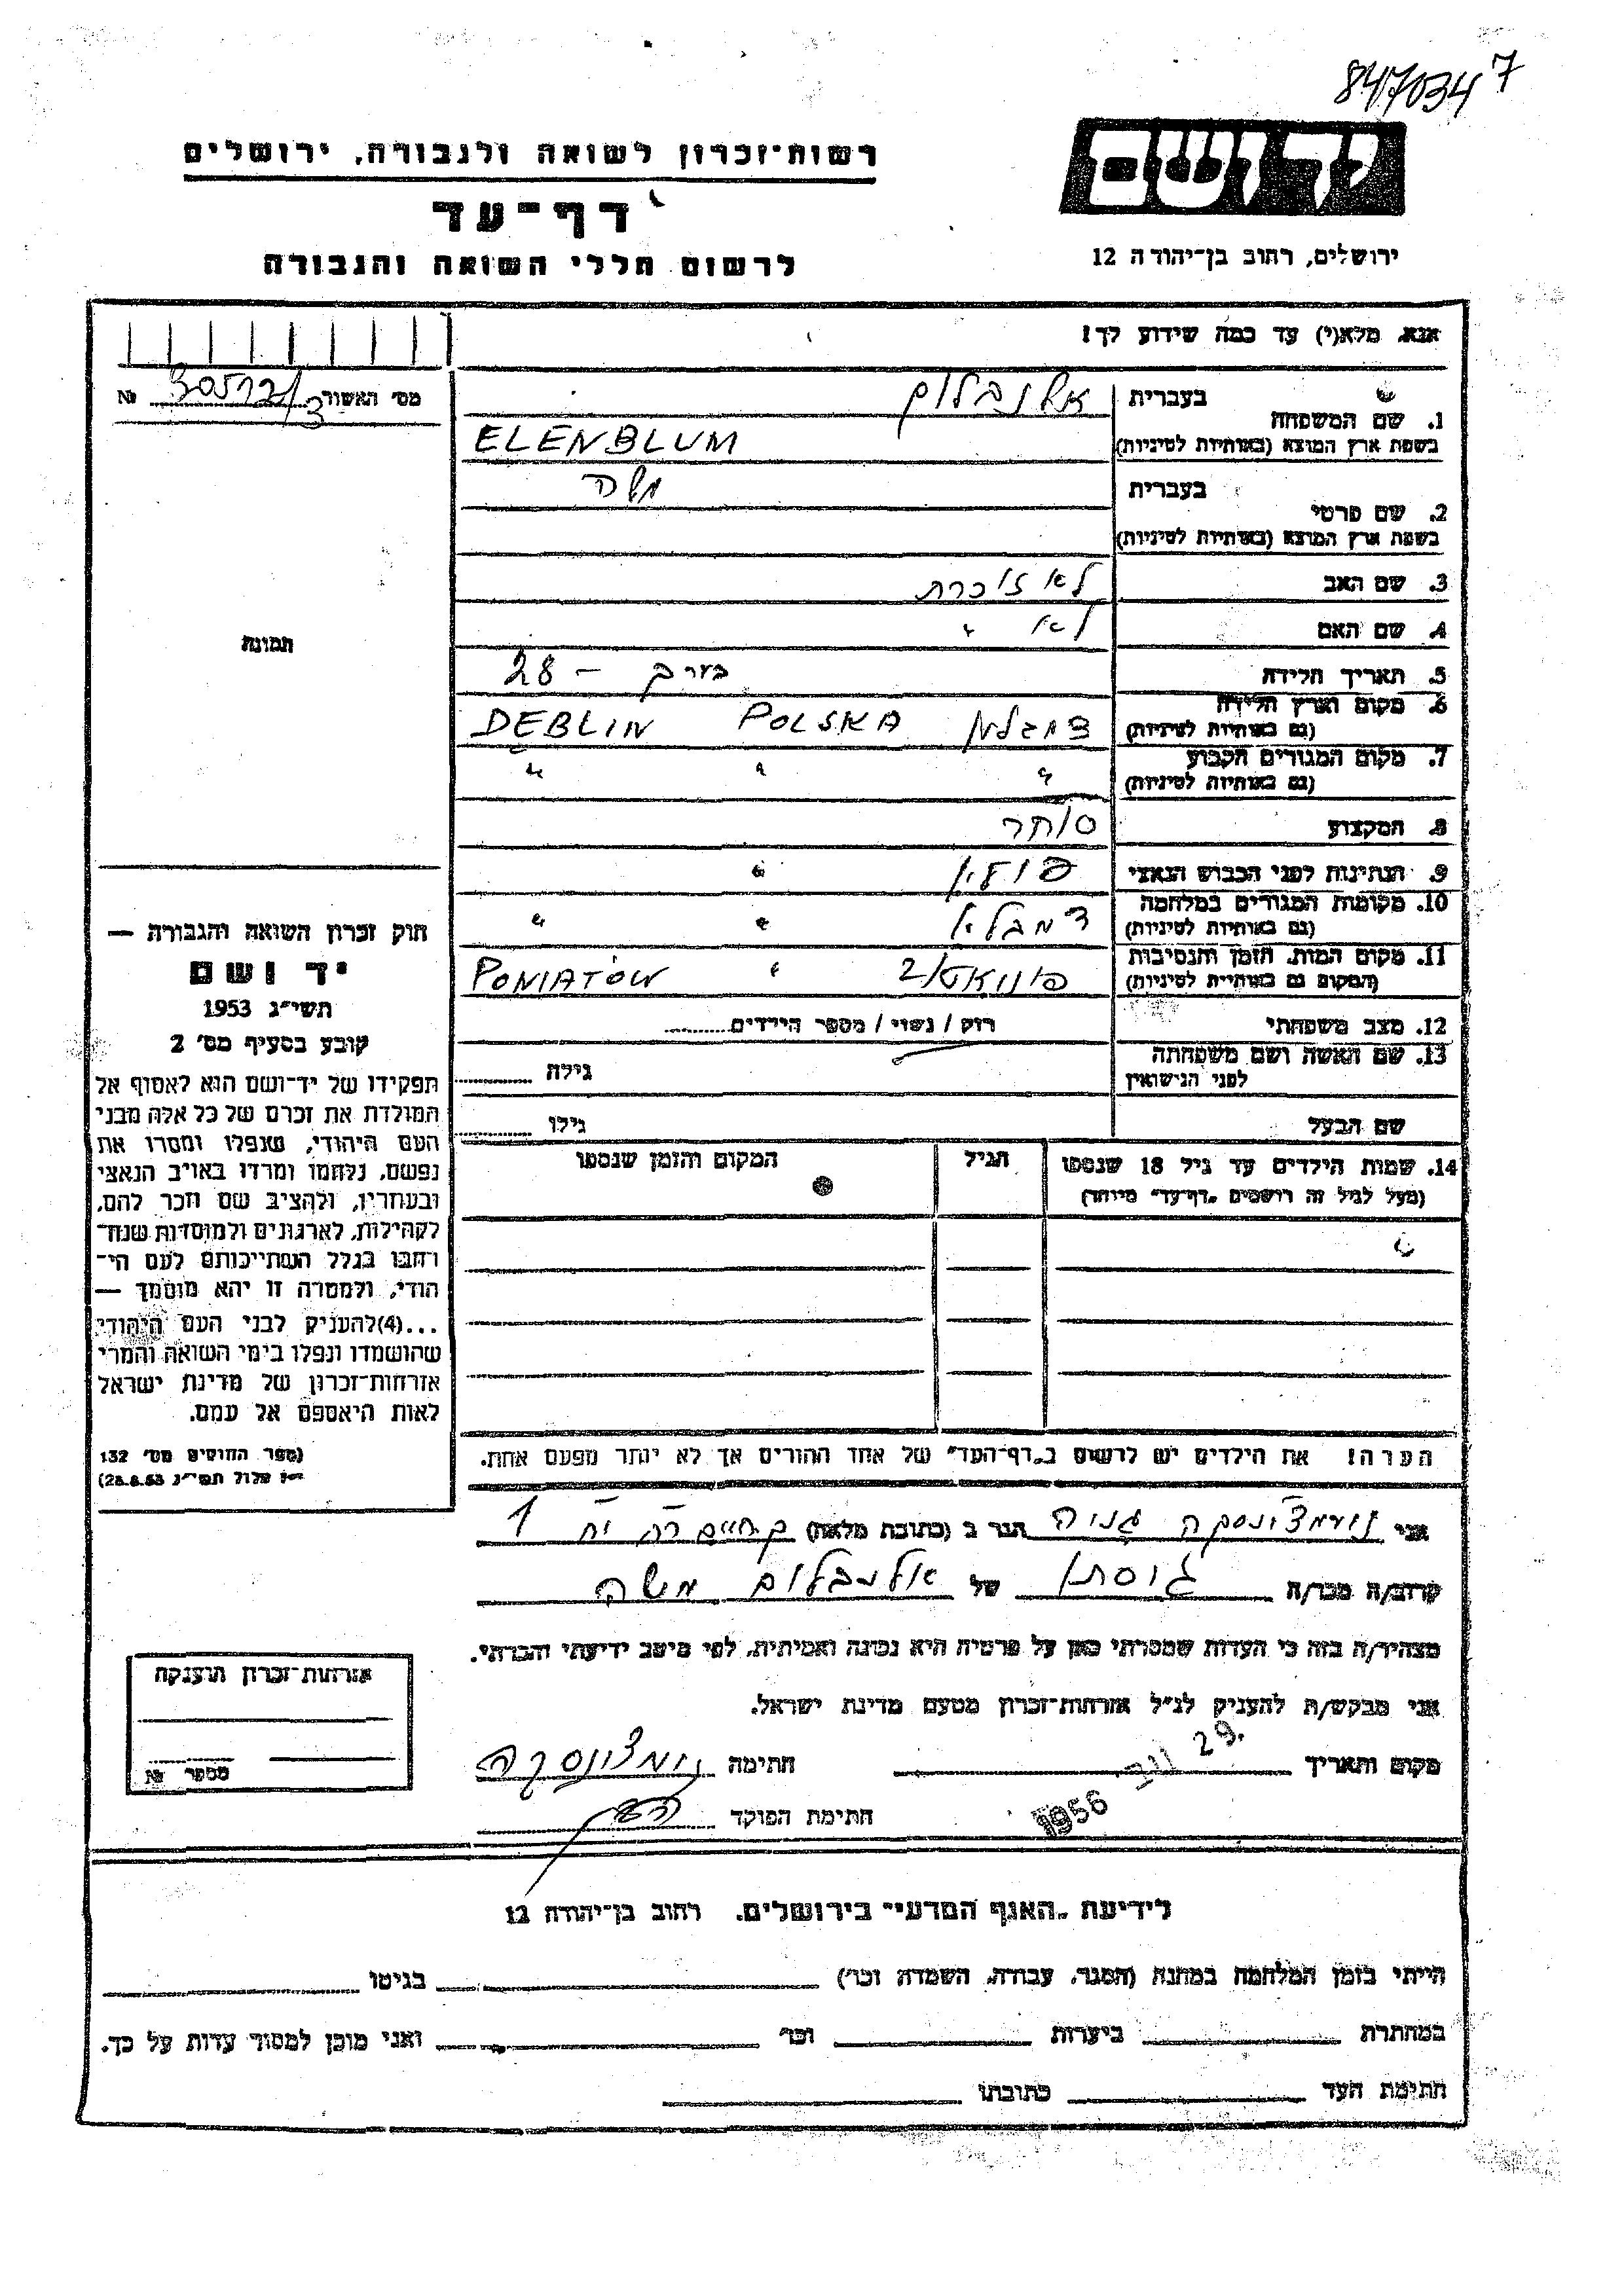 8470347
יד ושם
רשות־זכרון לשואה ולגבורה, ירושלים
דף־עד
לרשום חללי השואה והגבורה
ירושלים, רחוב בן־יהודה 12
אנא, מלא(י) עד כמה שידוע לך!
מס׳ האשור 305172/3 №
1. שם המשפחה
בעברית אלנבלום
בשפת ארץ המוצא (באותיות לטיניות) ELENBLUM
2. שם פרטי
בעברית משה
בשפת ארץ המוצא (באותיות לטיניות)
3. שם האב לא זוכרת
4. שם האם לא "
5. תאריך הלידה בערך – 28
6. מקום וארץ הלידה
(גם באותיות לטיניות) דמבלין POLSKA DEBLIN
7. מקום המגורים הקבוע
(גם באותיות לטיניות) " " "
8. המקצוע סוחר
9. הנתינות לפני הכבוש הנאצי פולין "
10. מקומות המגורים במלחמה
(גם באותיות לטיניות) דמבלין " "
11. מקום המות, הזמן והנסיבות
(המקום גם באותיות לטיניות) פוניאטוב " PONIATÓW
12. מצב משפחתי רווק / נשוי / מספר הילדים
13. שם האשה ושם משפחתה
לפני הנישואין גילה
שם הבעל גילו
14. שמות הילדים עד גיל 18 שנספו הגיל המקום והזמן שנספו
(מעל לגיל זה רושמים „דף־עד" מיוחד)
הערה! את הילדים יש לרשום ב„דף־העד" של אחד ההורים אך לא יותר מפעם אחת.
תמונה
חוק זכרון השואה והגבורה —
יד ושם
תשי״ג 1953
קובע בסעיף מס׳ 2
תפקידו של יד־ושם הוא לאסוף אל
המולדת את זכרם של כל אלה מבני
העם היהודי, שנפלו ומסרו את
נפשם, נלחמו ומרדו באויב הנאצי
ובעוזריו, ולהציב שם וזכר להם,
לקהילות, לארגונים ולמוסדות שנח־
רבו בגלל השתייכותם לעם הי־
הודי, ולמטרה זו יהא מוסמך —
...(4)להעניק לבני העם היהודי
שהושמדו ונפלו בימי השואה והמרי
אזרחות־זכרון של מדינת ישראל
לאות היאספם אל עמם.
(ספר החוקים מס׳ 132
אלול תשי״ג 28.8.53)
אני גניה הגר ב (כתובת מלאה) ק. חיים 1
קרוב/ה מכר/ה גיסתו של אלנבלום משה
מצהיר/ה בזה כי העדות שמסרתי כאן על פרטיה היא נכונה ואמיתית, לפי מיטב ידיעתי והכרתי.
אני מבקש/ת להעניק לנ״ל אזרחות־זכרון מטעם מדינת ישראל.
מקום ותאריך 29. נוב 1956 חתימה
חתימת הפוקד
אזרחות־זכרון הוענקה
מספר №
לידיעת „האגף המדעי" בירושלים, רחוב בן־יהודה 12
הייתי בזמן המלחמה במחנה (הסגר, עבודה, השמדה וכו׳) בגיטו
במחתרת ביערות וכו׳ ואני מוכן למסור עדות על כך.
חתימת העד כתובתו